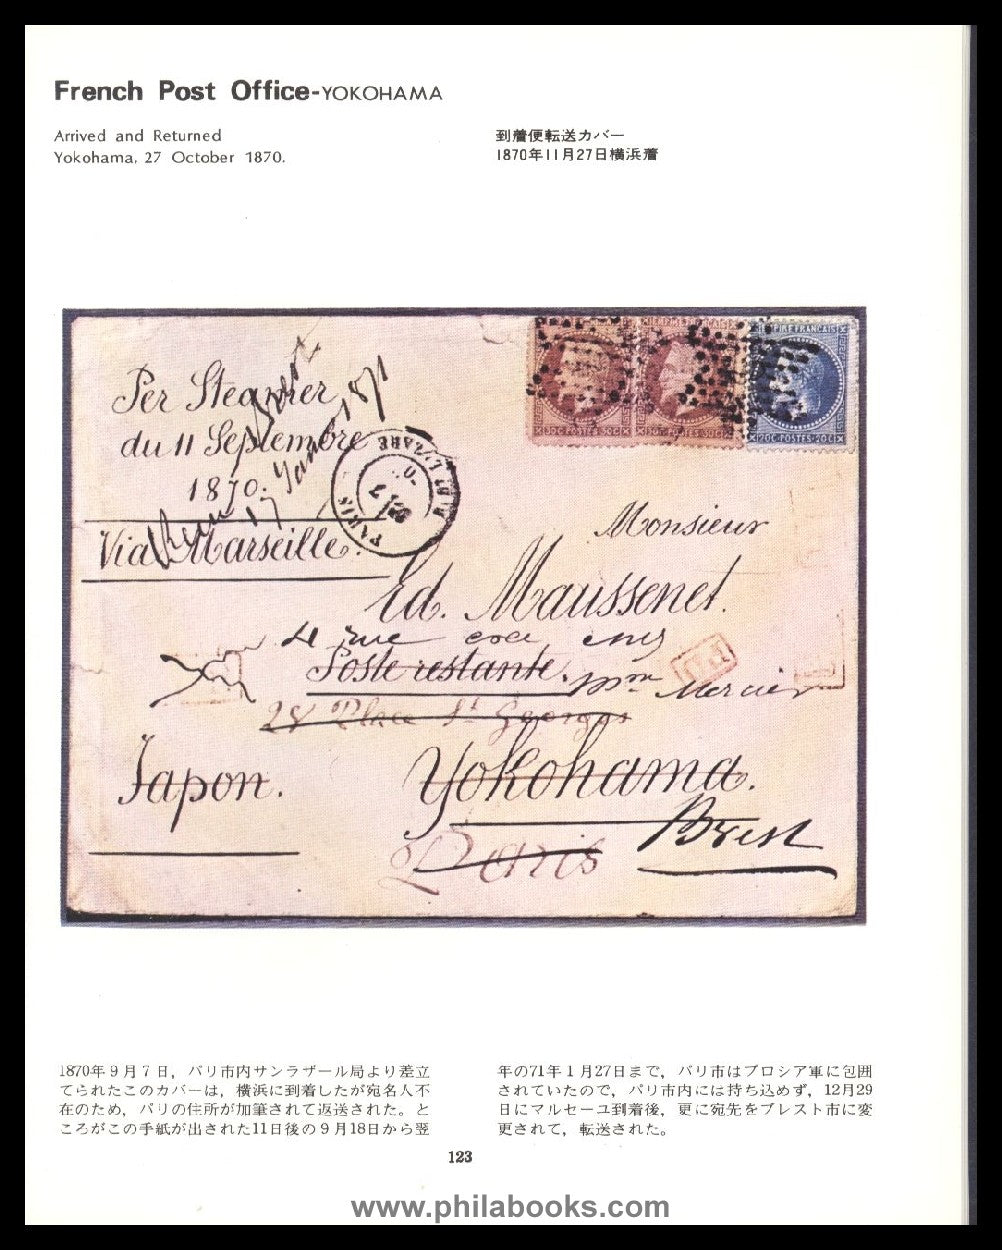 French Post Office-YOKOHAMA
Arrived and Returned
Yokohama, 27 October 1870.
到着便転送カバー
1870年11月27日横浜着
Per Steamer
du 11 Septembre
1870.
Via Marseille.
Brest
17 Janv 1871
PARIS
EMPIRE FRANÇAIS
30C·POSTES·30C
30C·POSTES·30C
20C·POSTES·20C
Monsieur
Ed. Maussenet.
4 rue
Poste restante.
Mme Mercier
P.D.
28 Place St Georges
Japon.
Yokohama.
Paris
Brest
1870年9月7日，パリ市内サンラザール局より差立
てられたこのカバーは，横浜に到着したが宛名人不
在のため，パリの住所が加筆されて返送された。と
ころがこの手紙が出された11日後の9月18日から翌
年の71年1月27日まで，パリ市はプロシア軍に包囲
されていたので，パリ市内には持ち込めず，12月29
日にマルセーユ到着後，更に宛先をブレスト市に変
更されて，転送された。
123
www.philabooks.com